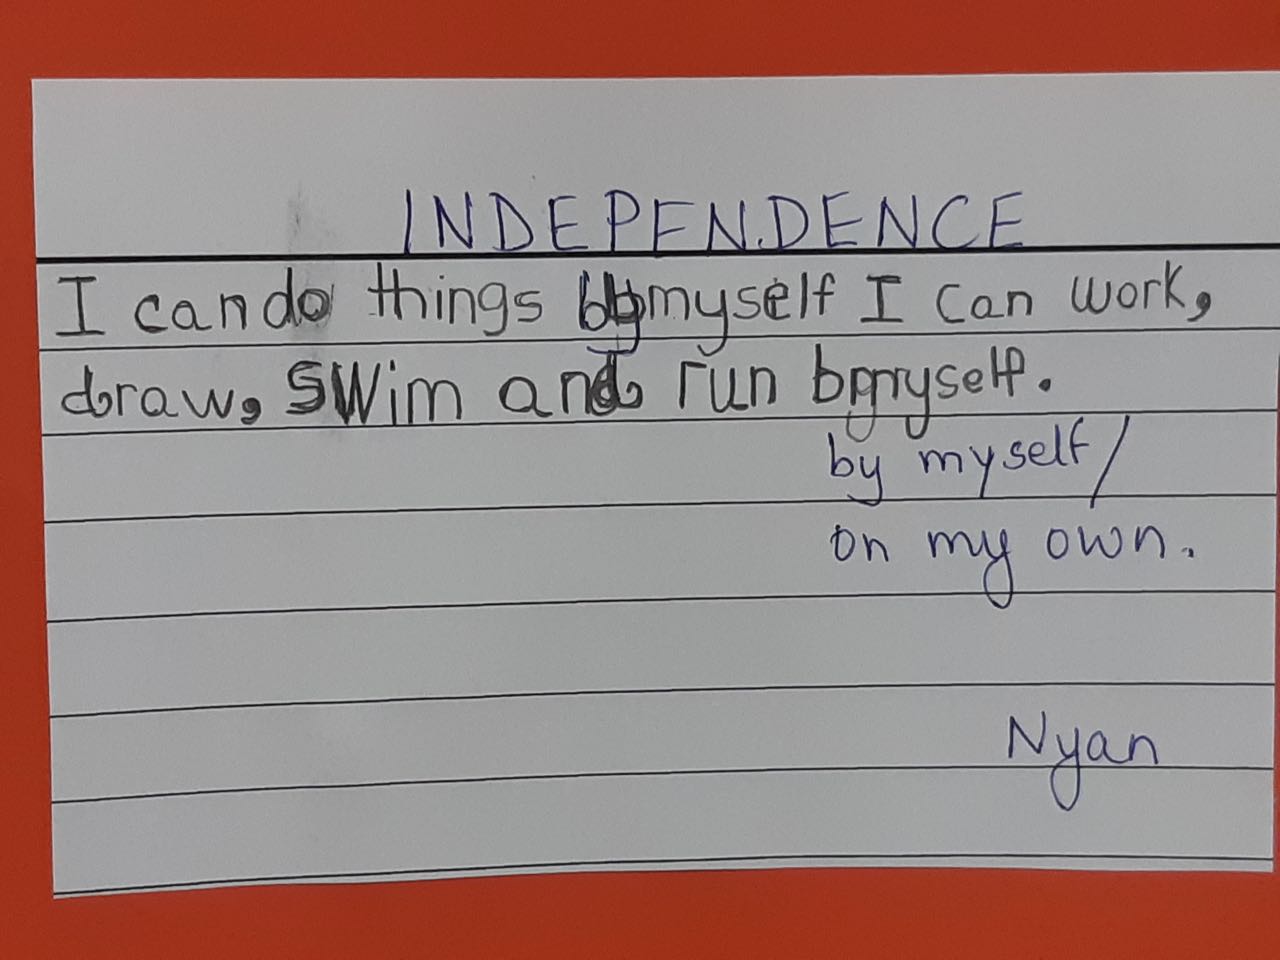 INDEPENDENCE
I can do things by myself I can work,
draw, swim and run bymyself.
by myself/
on my own.
Nyan